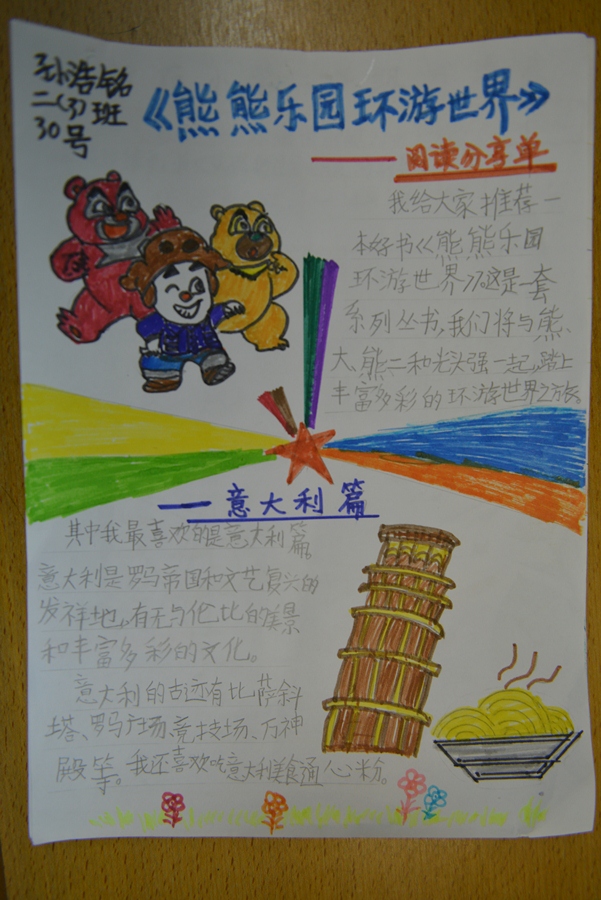 孙浩铭
二(3)班
30号
《熊熊乐园环游世界》
——阅读分享单
我给大家推荐一
本好书《熊熊乐园
环游世界》。这是一套
系列丛书,我们将与熊
大、熊二和光头强一起,踏上
丰富多彩的环游世界之旅。
——意大利篇
其中我最喜欢的是意大利篇。
意大利是罗马帝国和文艺复兴的
发祥地。有无与伦比的美景
和丰富多彩的文化。
意大利的古迹有比萨斜
塔、罗马广场、竞技场、万神
殿等。我还喜欢吃意大利美食通心粉。